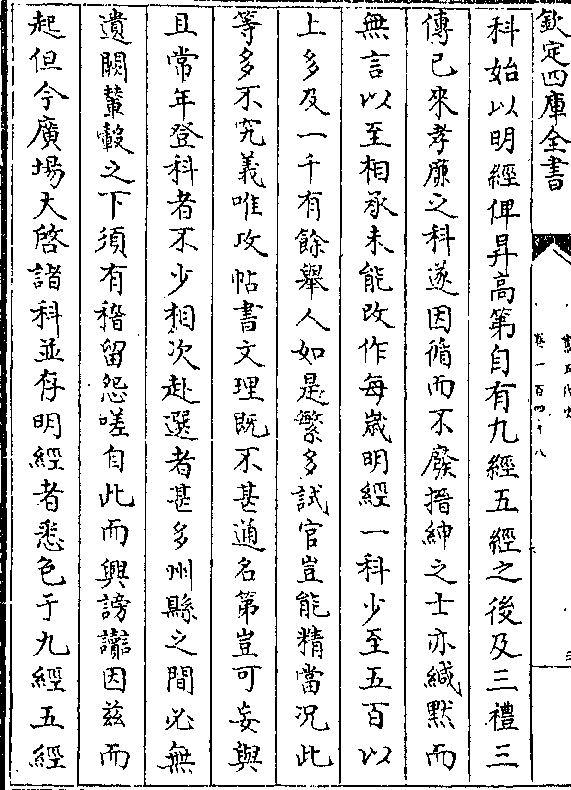 欽定四庫全書
科始以明經俾昇高第自有九經五經之後及三禮三
傳已來孝廉之科遂因循而不廢搢紳之士亦緘默而
無言以至相承未能改作每歲明經一科少至五百以
上多及一千有餘舉人如是繁多試官豈能精當況此
等多不究義唯攻帖書文理既不甚通名第豈可妄與
且常年登科者不少相次赴選者甚多州縣之間必無
遺闕輦轂之下須有稽留怨嗟自此而興謗讟因茲而
起但今廣場大啓諸科並存明經者悉包于九經五經